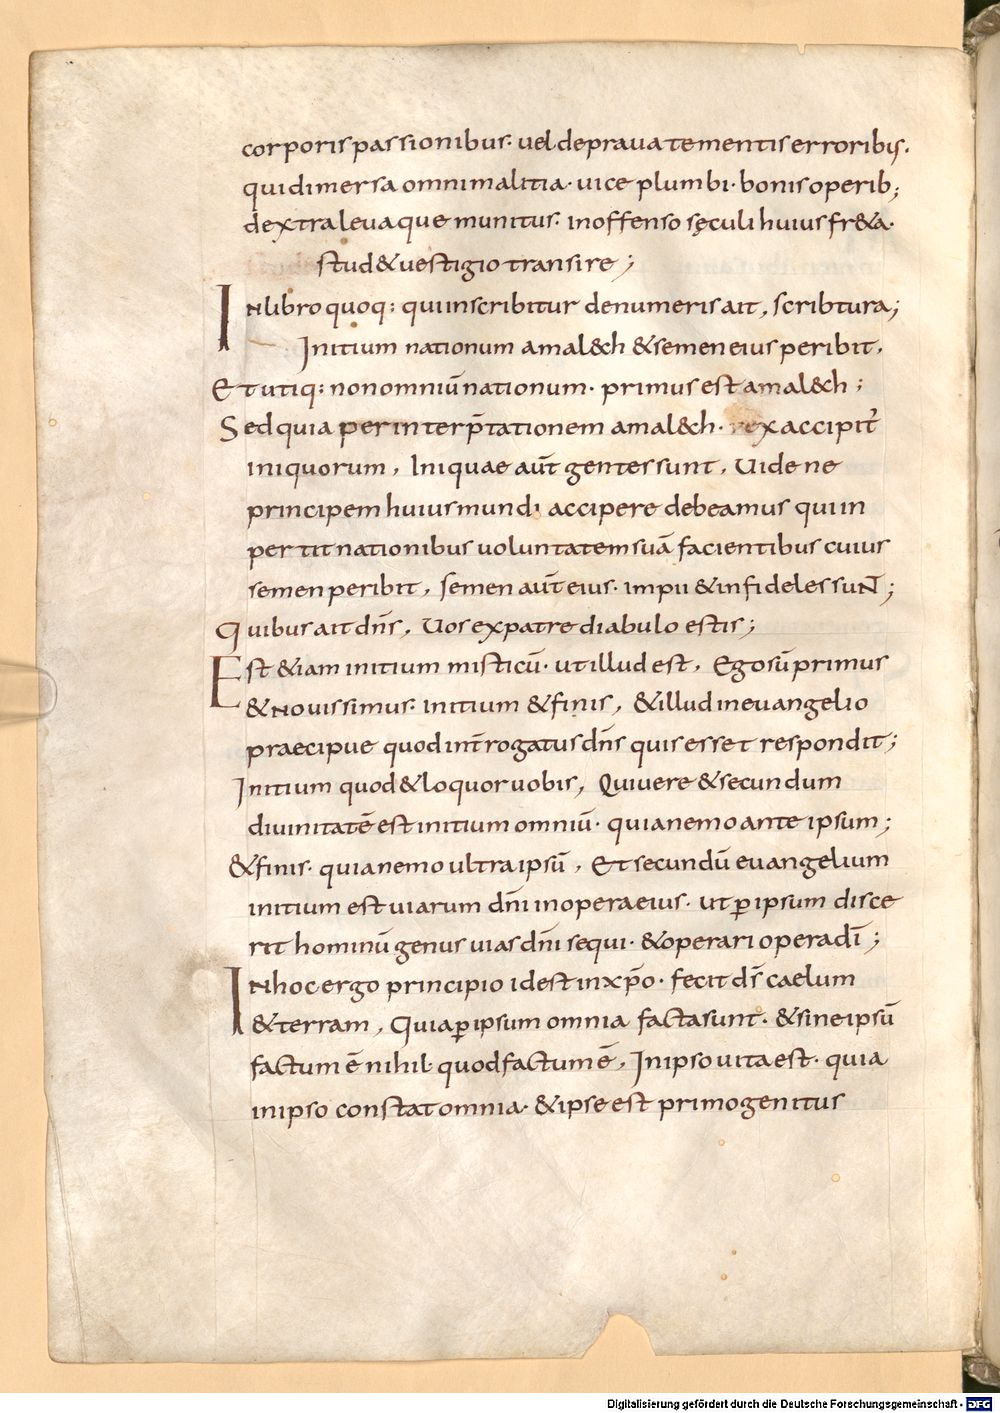 corporis passionibus· vel depravate mentis erroribus.
qui dimersa omni malitia· vice plumbi· bonis operib;
dextra levaque munitus· inoffenso sęculi huius fr&a·
stud& vestigio transire;
In libro quoq: qui inscribitur de numeris ait, scribtura;
Initium nationum amal&ch & semen eius peribit,
Et utiq: non omniū nationum· primus est amal&ch;
Sed quia per interp̄tationem amal&ch· rex accipit̄
iniquorum, Iniquae aūt gentes sunt, Vide ne
principem huius mundi accipere debeamus qui in
pertit nationibus voluntatem suā facientibus cuius
semen peribit, semen aūt eius· impii & infideles suN̄;
Quibus ait dn̄s, Vos ex patre diabulo estis;
Est &iam initium misticū· ut illud est, Ego sū primus
& Novissimus· initium & finis, & illud in evangelio
praecipue quod int̄rogatus dn̄s quis esset respondit;
Initium quod & loquor vobis, Qui vere & secundum
divinitatē est initium omniū· quia nemo ante ipsum;
& finis· quia nemo ultra ipsū, Et secundū evangelium
initium est viarum dn̄i in opera eius· ut ꝑ ipsum disce
rit hominū genus vias dn̄i sequi· & operari opera dī;
In hoc ergo principio id est in xp̄o· fecit dī caelum
& terram, Quia ꝑ ipsum omnia facta sunt· & sine ipsū
factum ē nihil· quod factum ē, In ipso vita est· quia
in ipso constat omnia· & ipse est primogenitus
Digitalisierung gefördert durch die Deutsche Forschungsgemeinschaft - DFG